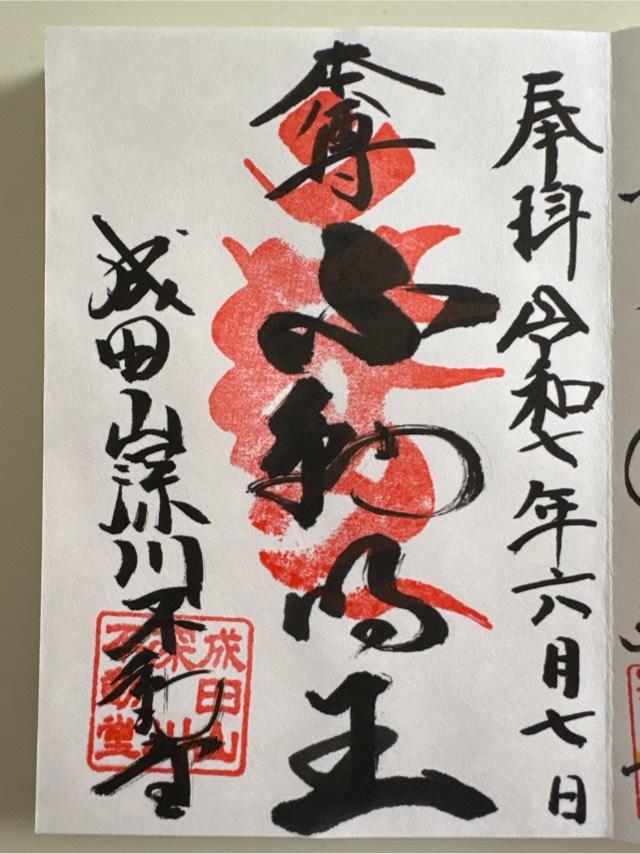 奉拝 令和七年六月七日
本尊
不動明王
成田山深川不動堂
成田山
深川
不動堂